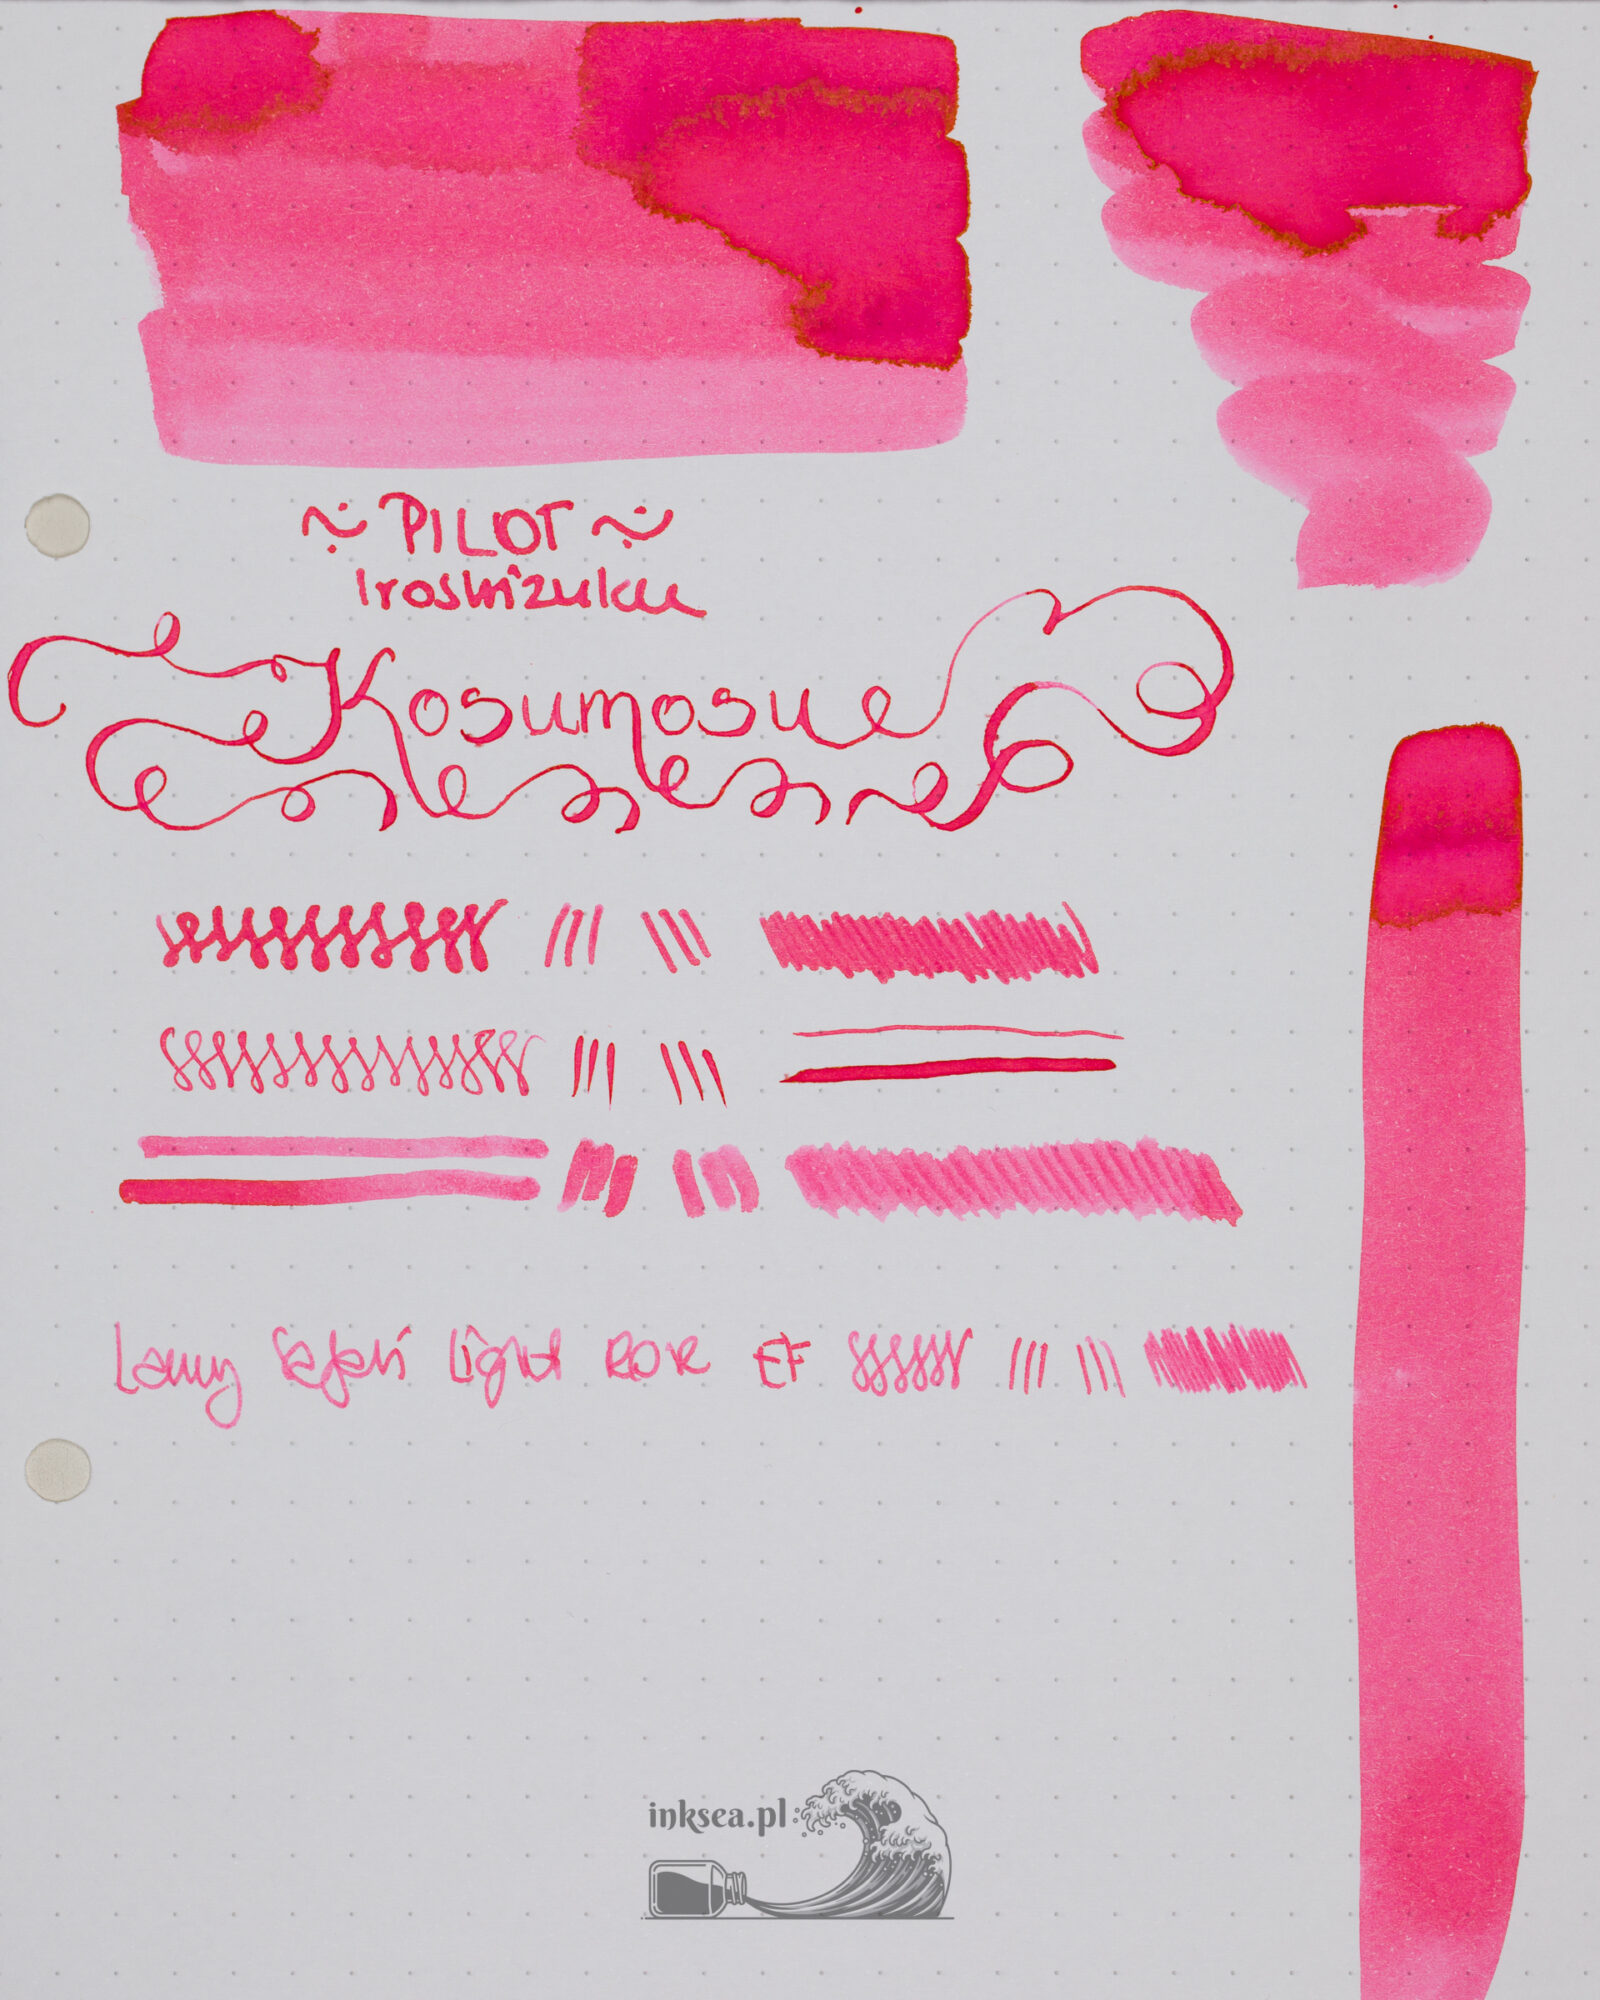 ~ PILOT ~
Iroshizuku
Kosumosu
Lamy Safari Light ROSE EF
inksea.pl